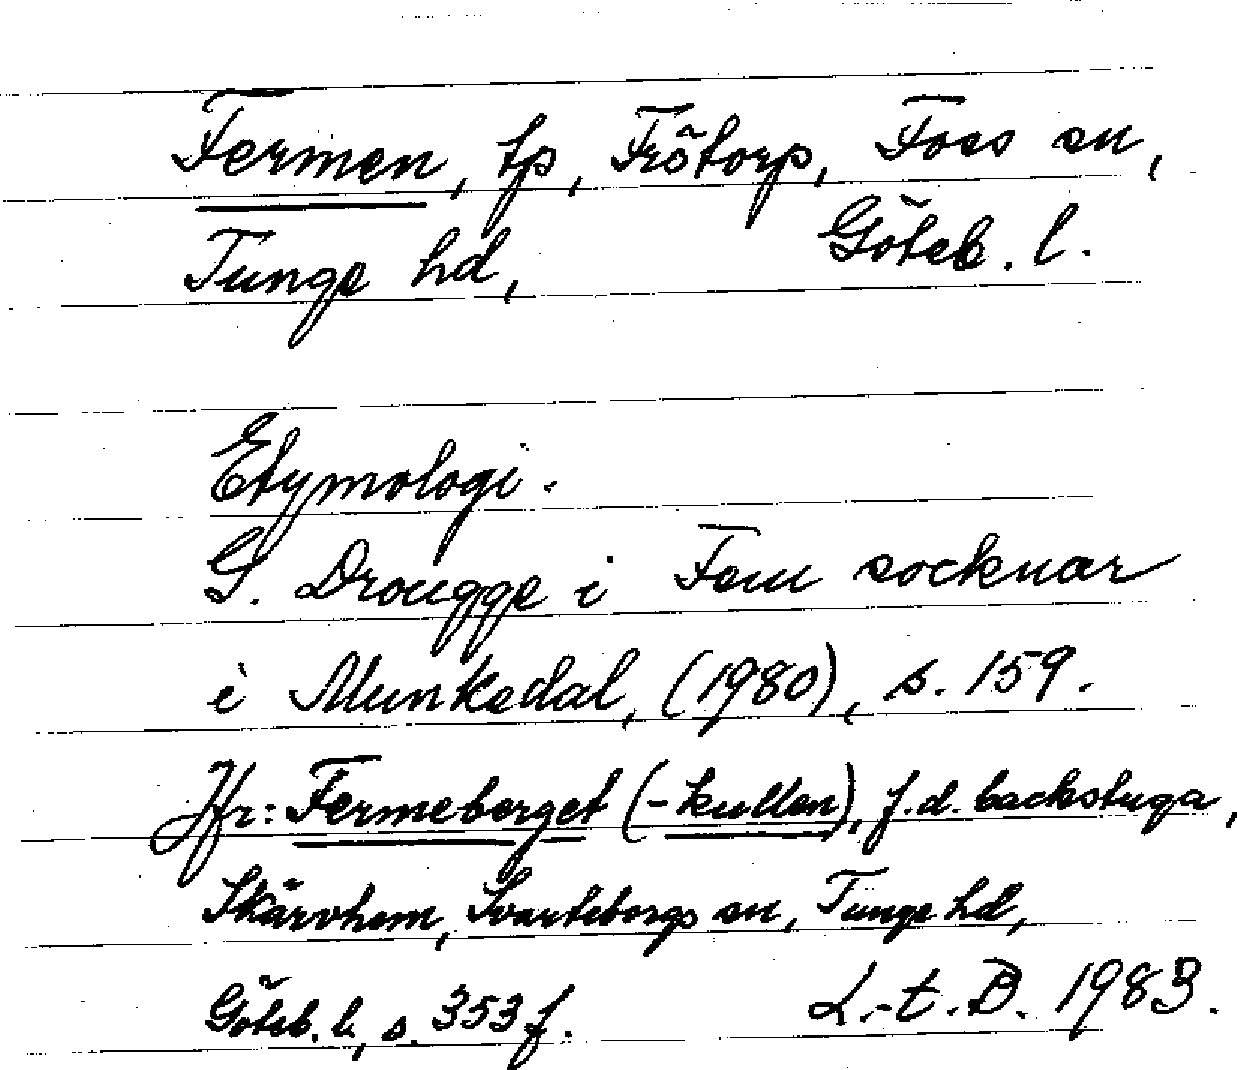 Fermen, tp, Frötorp, Foss sn,
Tunge hd, Göteb. l.
Etymologi.
G. Drougge i Fem socknar
i Munkedal, (1980), s. 159.
Jfr: Fermeberget (-kullen), f.d. backstuga,
Skärvhem, Svarteborgs sn, Tunge hd,
Göteb. l, s. 353 f. L.-t. B. 1983.